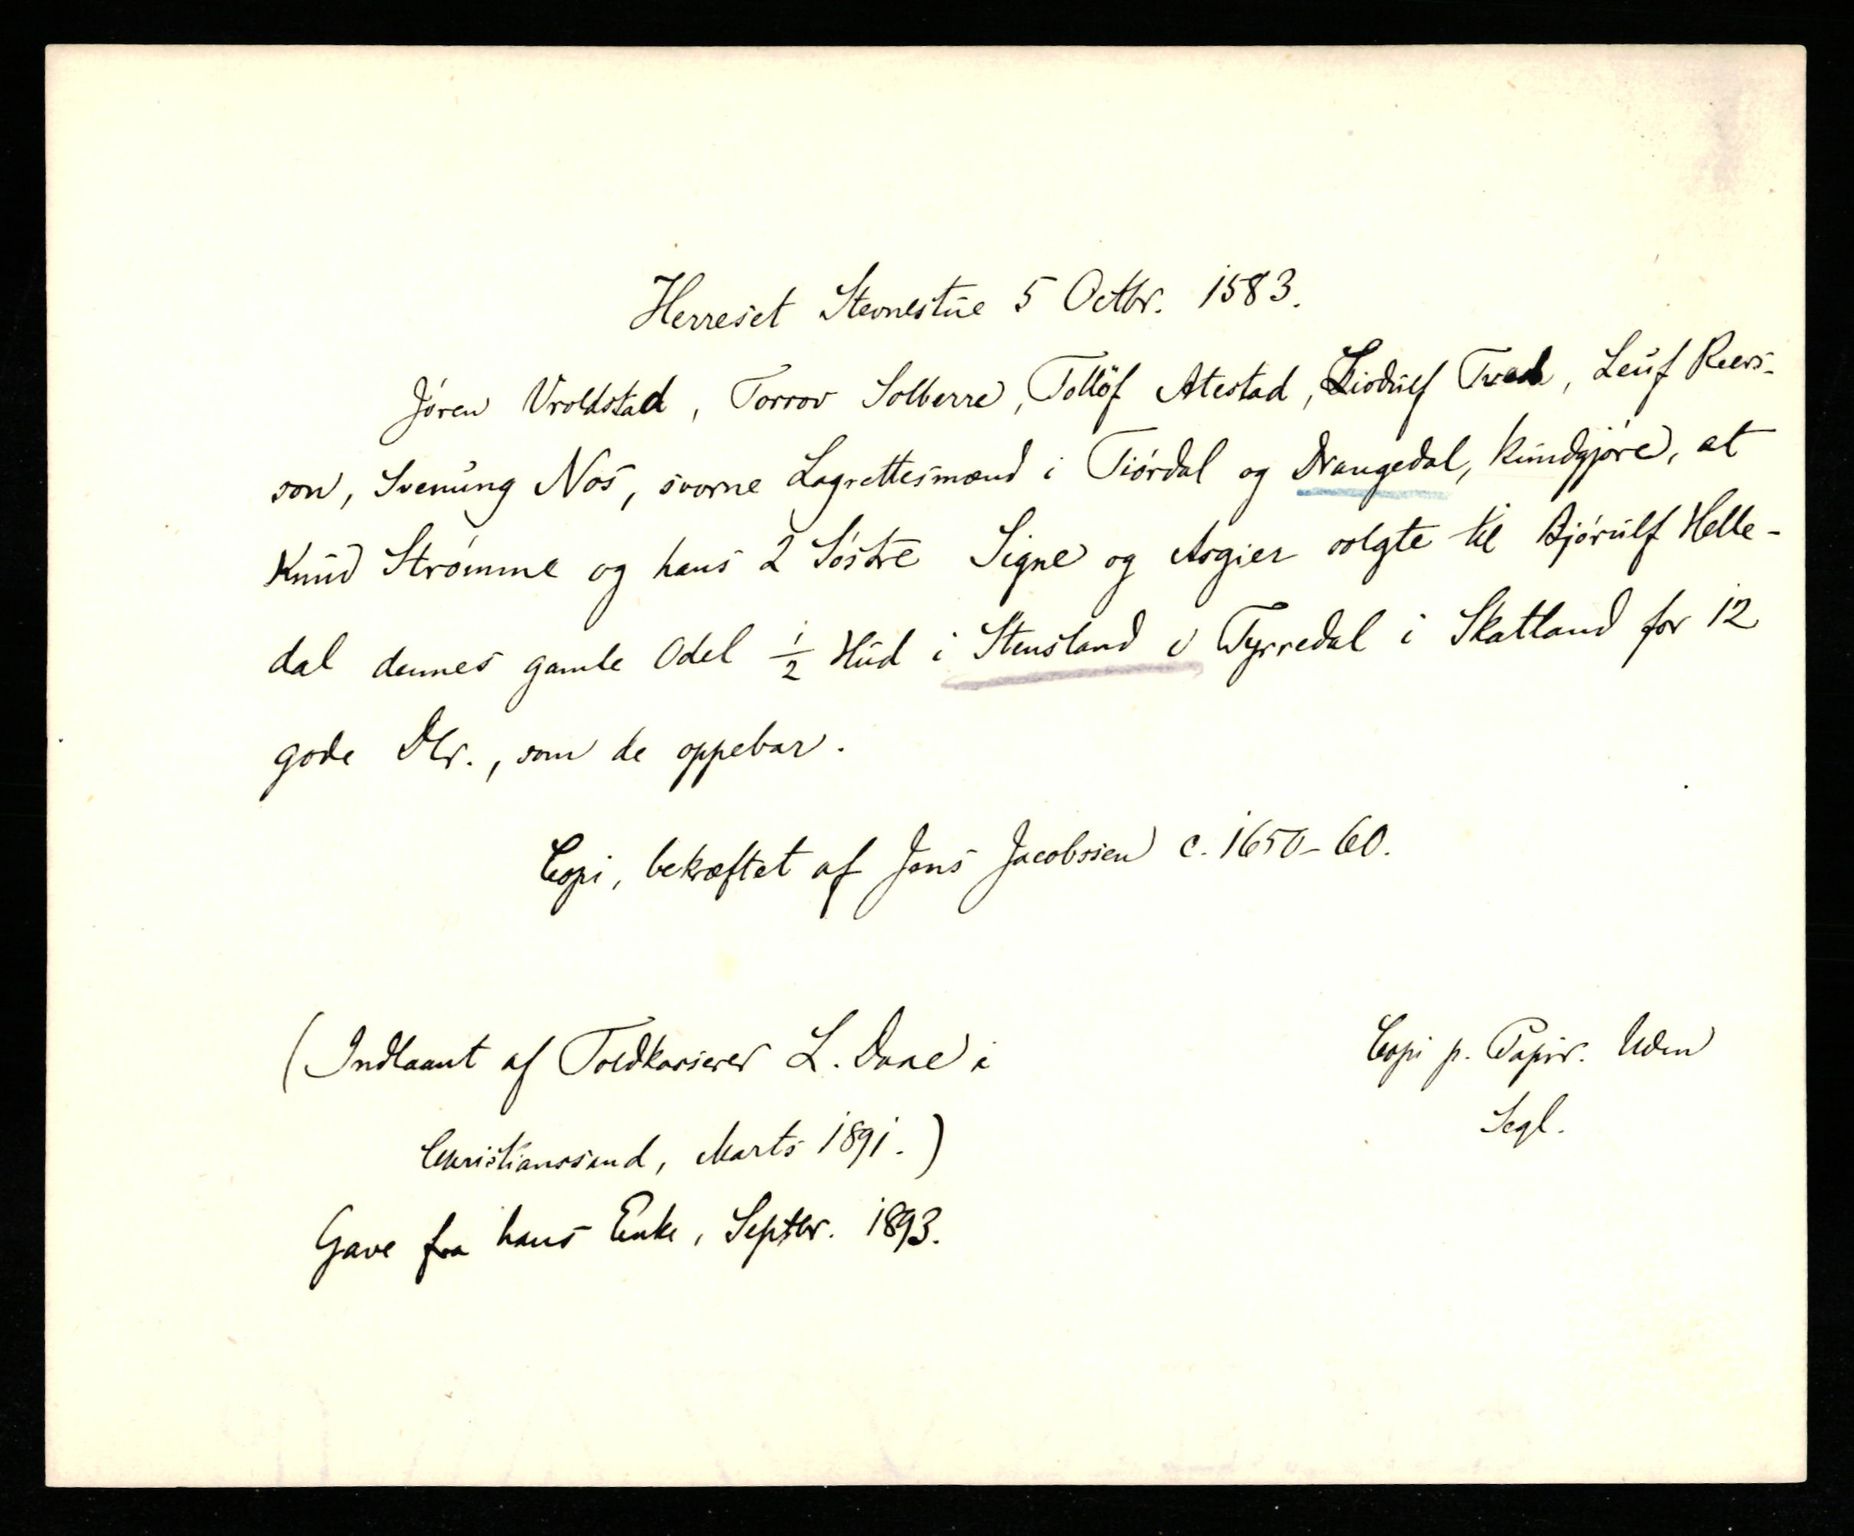 Herreset Stevnestue 5 Octbr. 1583.
Jøren Vroldstad, Torrov Solberre, Tolløf Atestad, Liodulf Tvedt, Leuf Reers-
son, Svenung Nos, svorne Lagrettesmænd i Tiørdal og Drangedal, kundgjøre, at
Knud Strømme og hans 2 Søstre Signe og Asgier solgte til Bjørulf Helle-
dal dennes gamle Odel 1/2 Hud i Stensland i Tyrredal i Skatland for 12
gode Dlr., som de oppebar.
Copi, bekræftet af Jens Jacobssen c. 1650-60.
(Indlaant af Toldkasserer L. Daae i
Christianssand, Marts 1891.)
Gave fra hans Enke, Septbr. 1893.
Copi p. Papir. Uden
Segl.